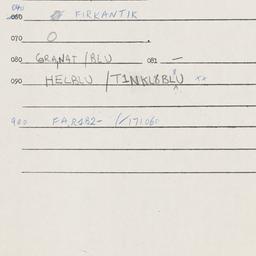 040
060 FIRKANTIK
070 O
080 GRANAT/BLU 081 —
090 HELBLU /T1NKL8BLU xx
900 FA,R182- //171060